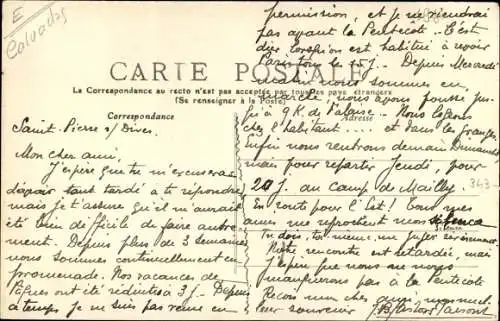 E
Calvados
CARTE POSTALE
La Correspondance au recto n'est pas acceptée par tous les pays étrangers
(Se renseigner à la Poste)
Correspondance
Adresse
Saint-Pierre s/ Dives.
Mon cher ami,
J'espère que tu m'excuseras
d'avoir tant tardé à te répondre
mais je t'assure qu'il m'aurait
été bien difficile de faire autre-
ment. Depuis plus de 3 semaines
nous sommes continuellement en
promenade. Nos vacances de
Pâques ont été réduites à 3 J. Depuis
ce temps je ne suis pas venu en
permission, et je ne reviendrai
pas avant la Pentecôte. C'est
dur lorsqu'on est habitué à revoir
Paris tous les 15 J. Depuis Mercredi
matin nous sommes en
marche, nous avons poussé jus-
qu'à 9 K. de Falaise. Nous logeons
chez l'habitant et dans les granges.
Enfin nous rendrons demain Dimanche
mais pour repartir Jeudi pour
20 J. au camp de Mailly.
En route pour l'Est ! Tous mes
amis me reprochent mon silence
Tu dois, toi-même, me juger sévèrement
Notre rencontre est retardée, mais
j'espère que nous ne nous
manquerons pas à la Pentecôte
Reçois mon cher ami mon meil-
leur souvenir
343